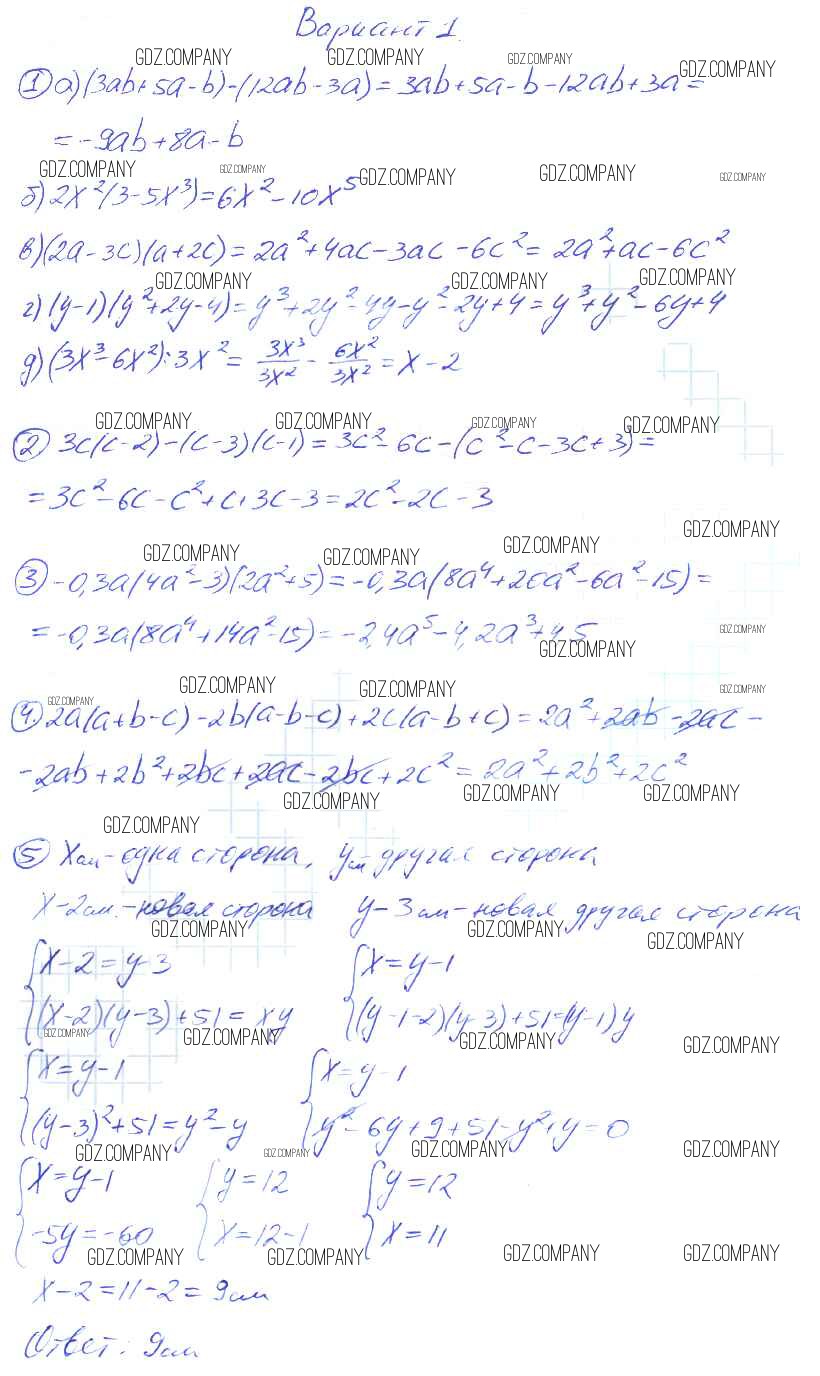 Вариант 1.
GDZ.COMPANY GDZ.COMPANY GDZ.COMPANY GDZ.COMPANY
① а) (3ab+5a-b)-(12ab-3a)=3ab+5a-b-12ab+3a=
=-9ab+8a-b
GDZ.COMPANY GDZ.COMPANY GDZ.COMPANY GDZ.COMPANY GDZ.COMPANY
б) 2x²(3-5x³)=6x²-10x⁵
в) (2a-3c)(a+2c)=2a²+4ac-3ac-6c²=2a²+ac-6c²
GDZ.COMPANY GDZ.COMPANY GDZ.COMPANY
г) (y-1)(y²+2y-4)=y³+2y²-4y-y²-2y+4=y³+y²-6y+4
д) (3x³-6x²):3x²= 3x³/3x² - 6x²/3x² = x-2
GDZ.COMPANY GDZ.COMPANY GDZ.COMPANY GDZ.COMPANY
② 3c(c-2)-(c-3)(c-1)=3c²-6c-(c²-c-3c+3)=
=3c²-6c-c²+c+3c-3=2c²-2c-3
GDZ.COMPANY GDZ.COMPANY GDZ.COMPANY GDZ.COMPANY
③ -0,3a(4a²-3)(2a²+5)=-0,3a(8a⁴+20a²-6a²-15)=
=-0,3a(8a⁴+14a²-15)=-2,4a⁵-4,2a³+4,5
GDZ.COMPANY GDZ.COMPANY
GDZ.COMPANY GDZ.COMPANY GDZ.COMPANY GDZ.COMPANY
④ 2a(a+b-c)-2b(a-b-c)+2c(a-b+c)=2a²+2ab-2ac-
-2ab+2b²+2bc+2ac-2bc+2c²=2a²+2b²+2c²
GDZ.COMPANY GDZ.COMPANY GDZ.COMPANY
GDZ.COMPANY
⑤ Xсм-одна сторона, yсм-другая сторона
x-2см.-новая сторона y-3см-новая другая сторона
GDZ.COMPANY GDZ.COMPANY GDZ.COMPANY
{x-2=y-3 {x=y-1
(x-2)(y-3)+51=xy (y-1-2)(y-3)+51=(y-1)y
GDZ.COMPANY GDZ.COMPANY GDZ.COMPANY GDZ.COMPANY
{x=y-1 {x=y-1
(y-3)²+51=y²-y y²-6y+9+51-y²+y=0
GDZ.COMPANY GDZ.COMPANY GDZ.COMPANY GDZ.COMPANY
{x=y-1 {y=12 {y=12
-5y=-60 x=12-1 x=11
GDZ.COMPANY GDZ.COMPANY GDZ.COMPANY GDZ.COMPANY
x-2=11-2=9см
Ответ: 9см